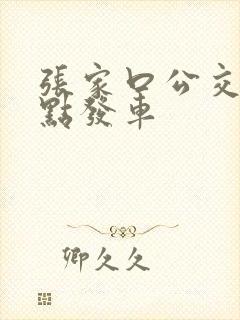 張家口公交
點發車
卿久久